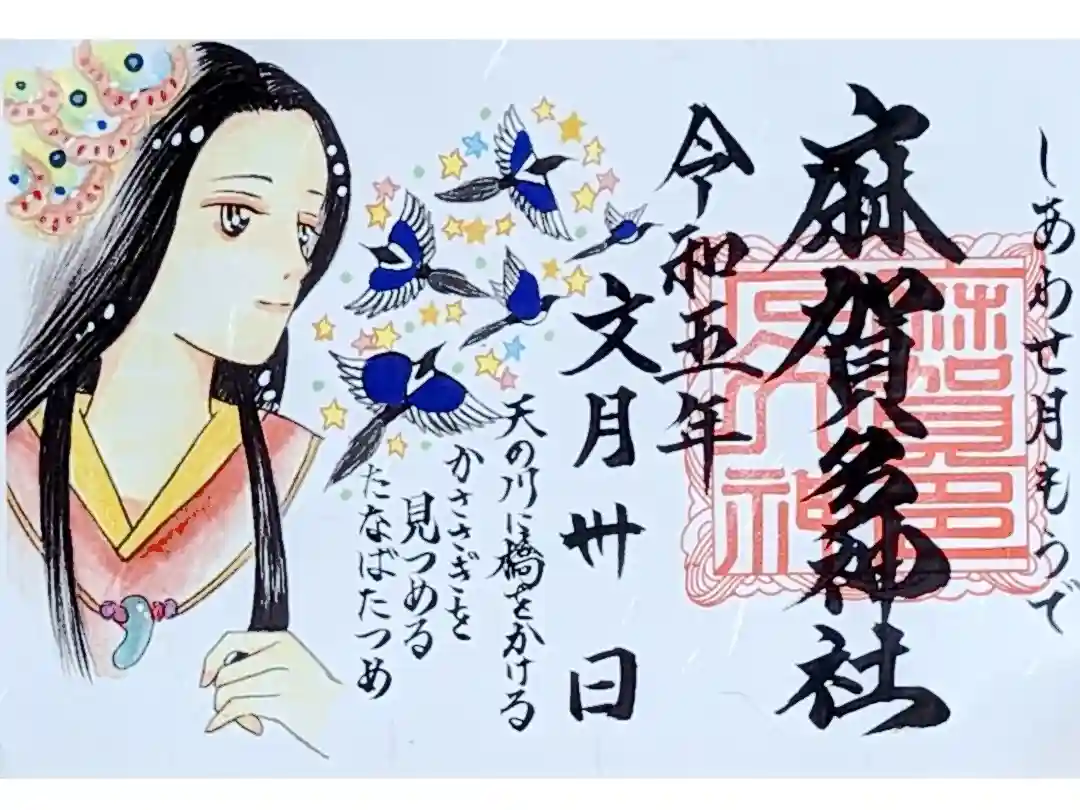 しあわせ月もうで
麻賀多神社
令和五年
文月卅日
天の川に橋をかける
かささぎを
見つめる
たなばたつめ